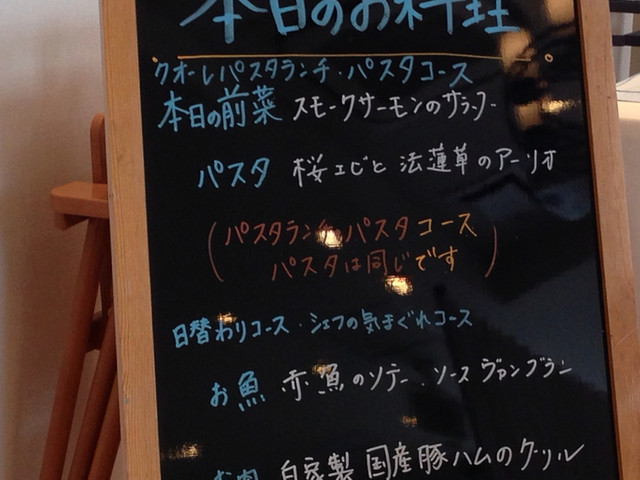 本日のお料理
クオーレパスタランチ・パスタコース
本日の前菜 スモークサーモンのサラダ
パスタ 桜エビと法蓮草のアーリオ
(パスタランチ・パスタコース
パスタは同じです)
日替わりコース・シェフの気まぐれコース
お魚 赤魚のソテー.ソースヴァンブラン
お肉 自家製国産豚ハムのグリル